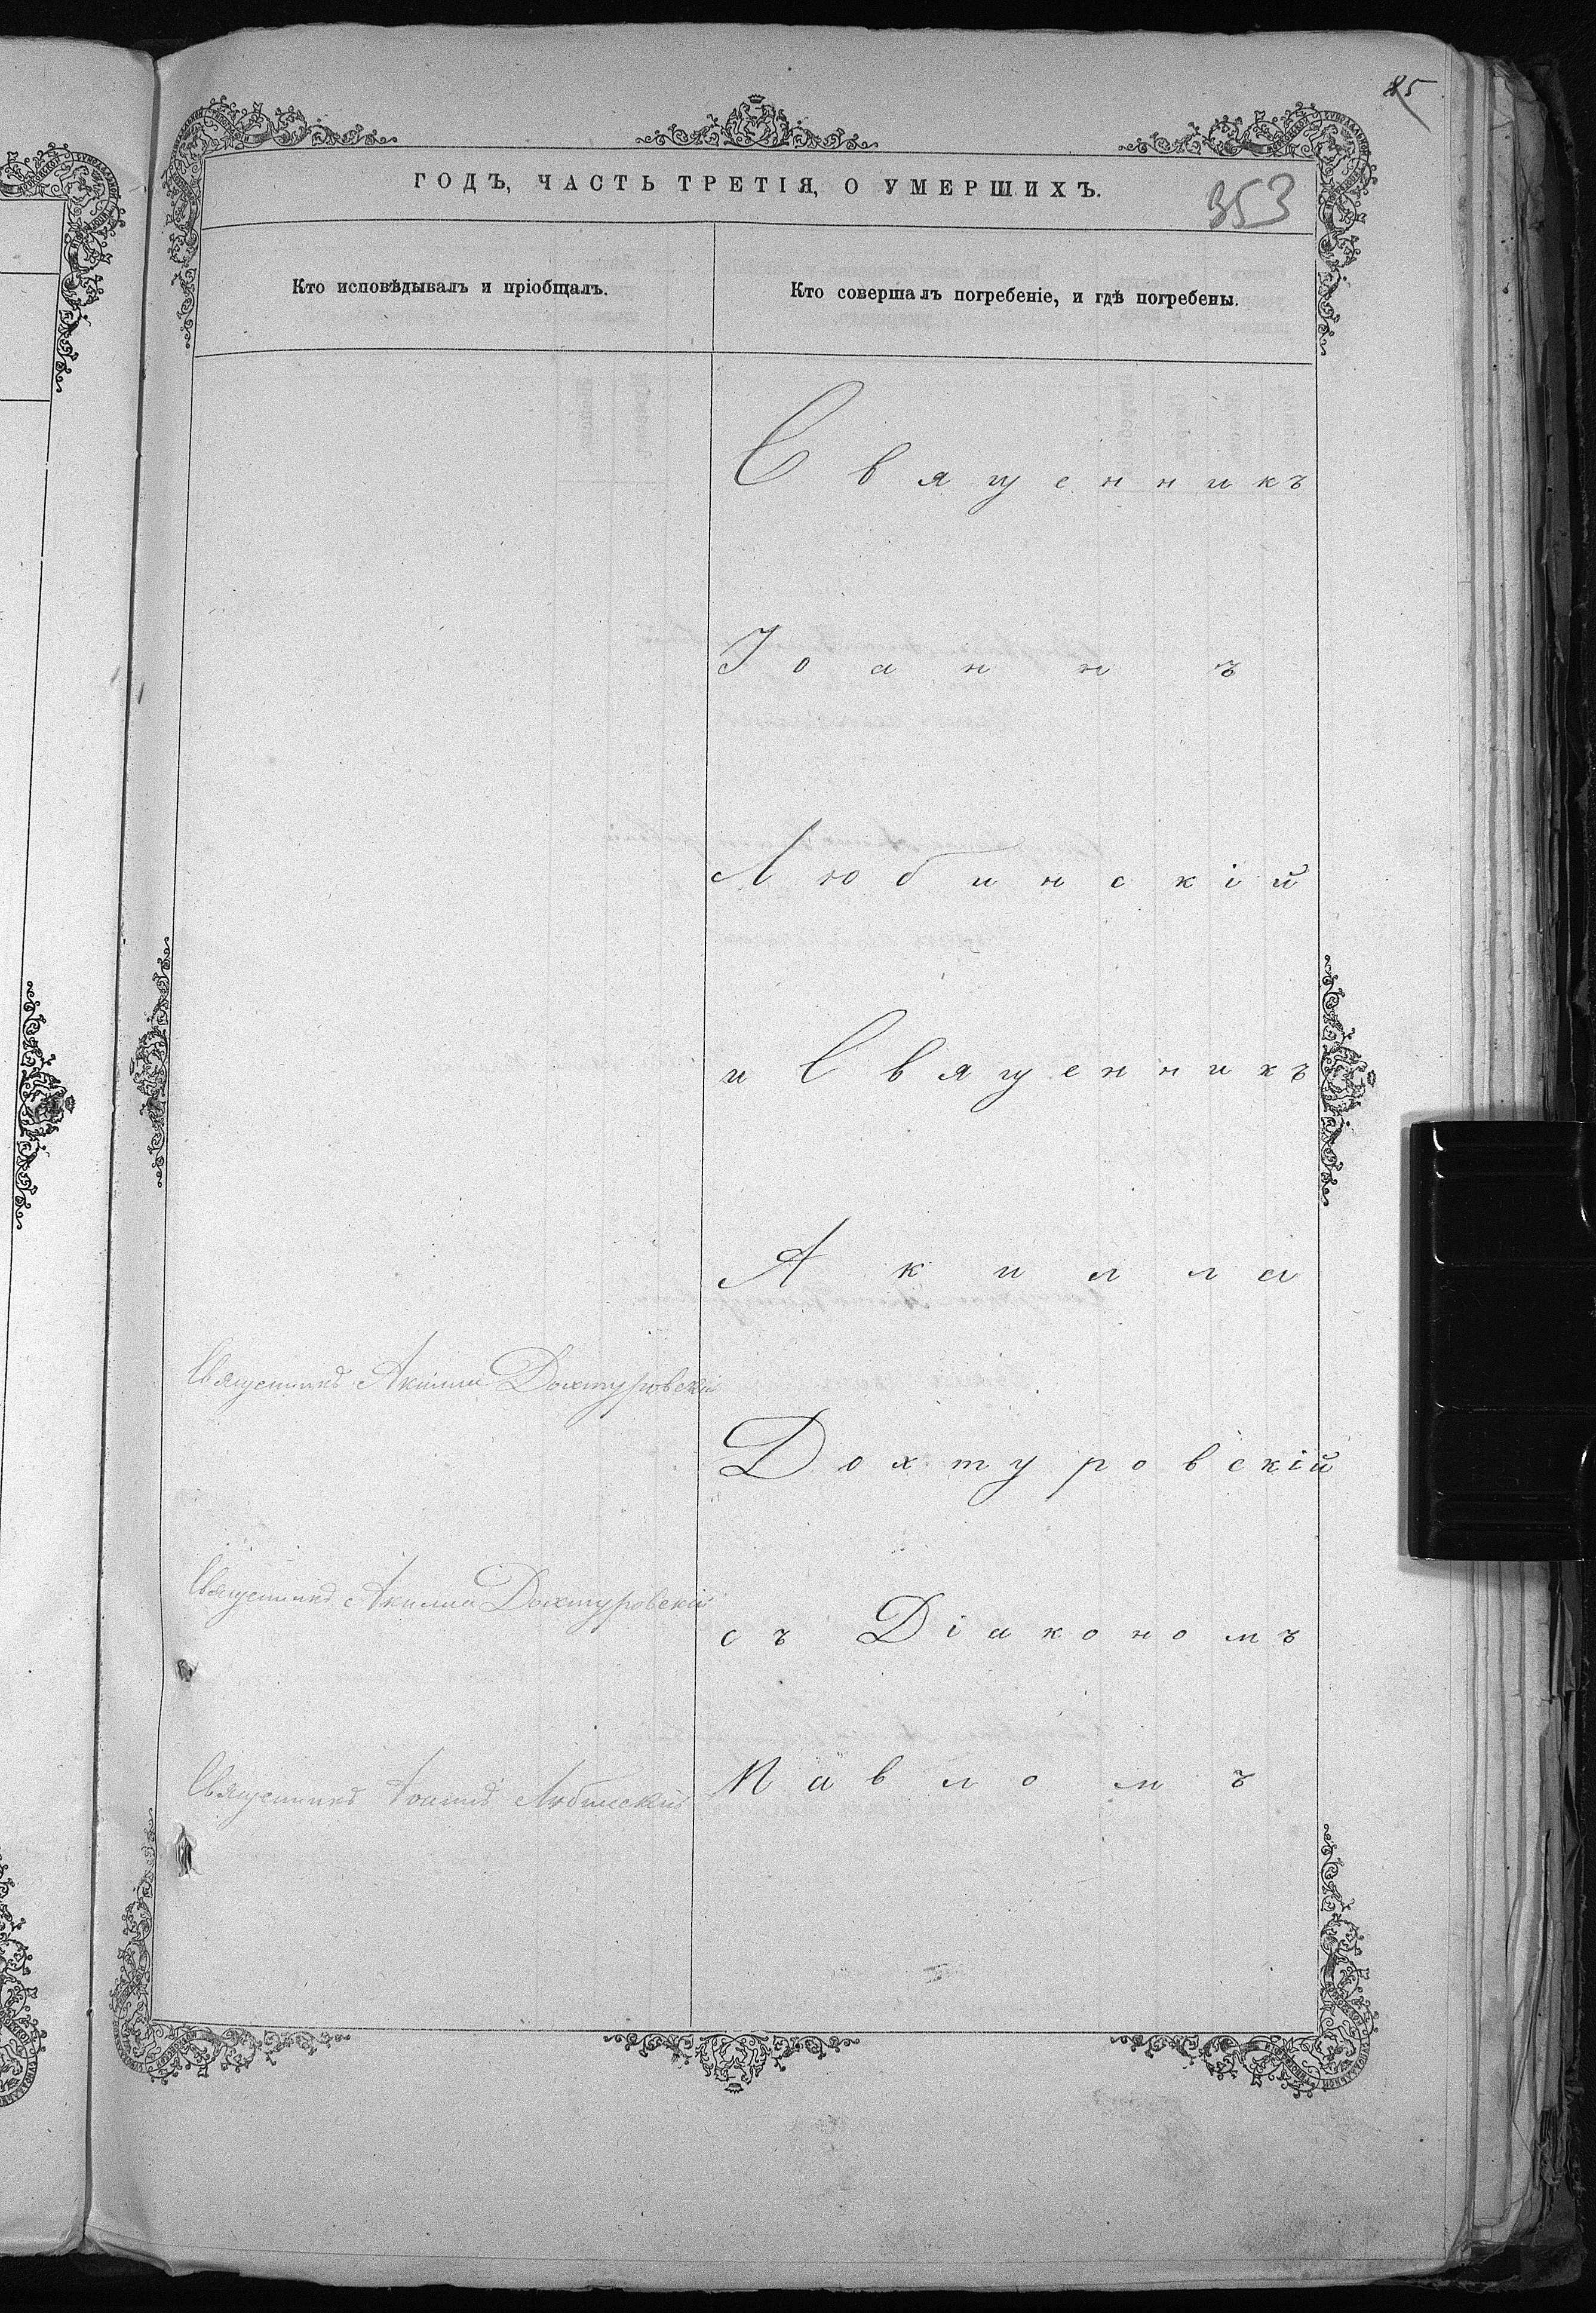 85
ГОДЪ, ЧАСТЬ ТРЕТІЯ, О УМЕРШИХЪ.
353
Кто исповѣдывалъ и пріобщалъ.
Кто совершалъ погребеніе, и гдѣ погребены.
Священникъ
Іоаннъ
Любинскій
и Священникъ
Акилла
Священникъ Акилла Дохтуровскій
Дохтуровскій
Священникъ Акилла Дохтуровскій
съ Діакономъ
Павломъ
Священникъ Іоаннъ Любинскій